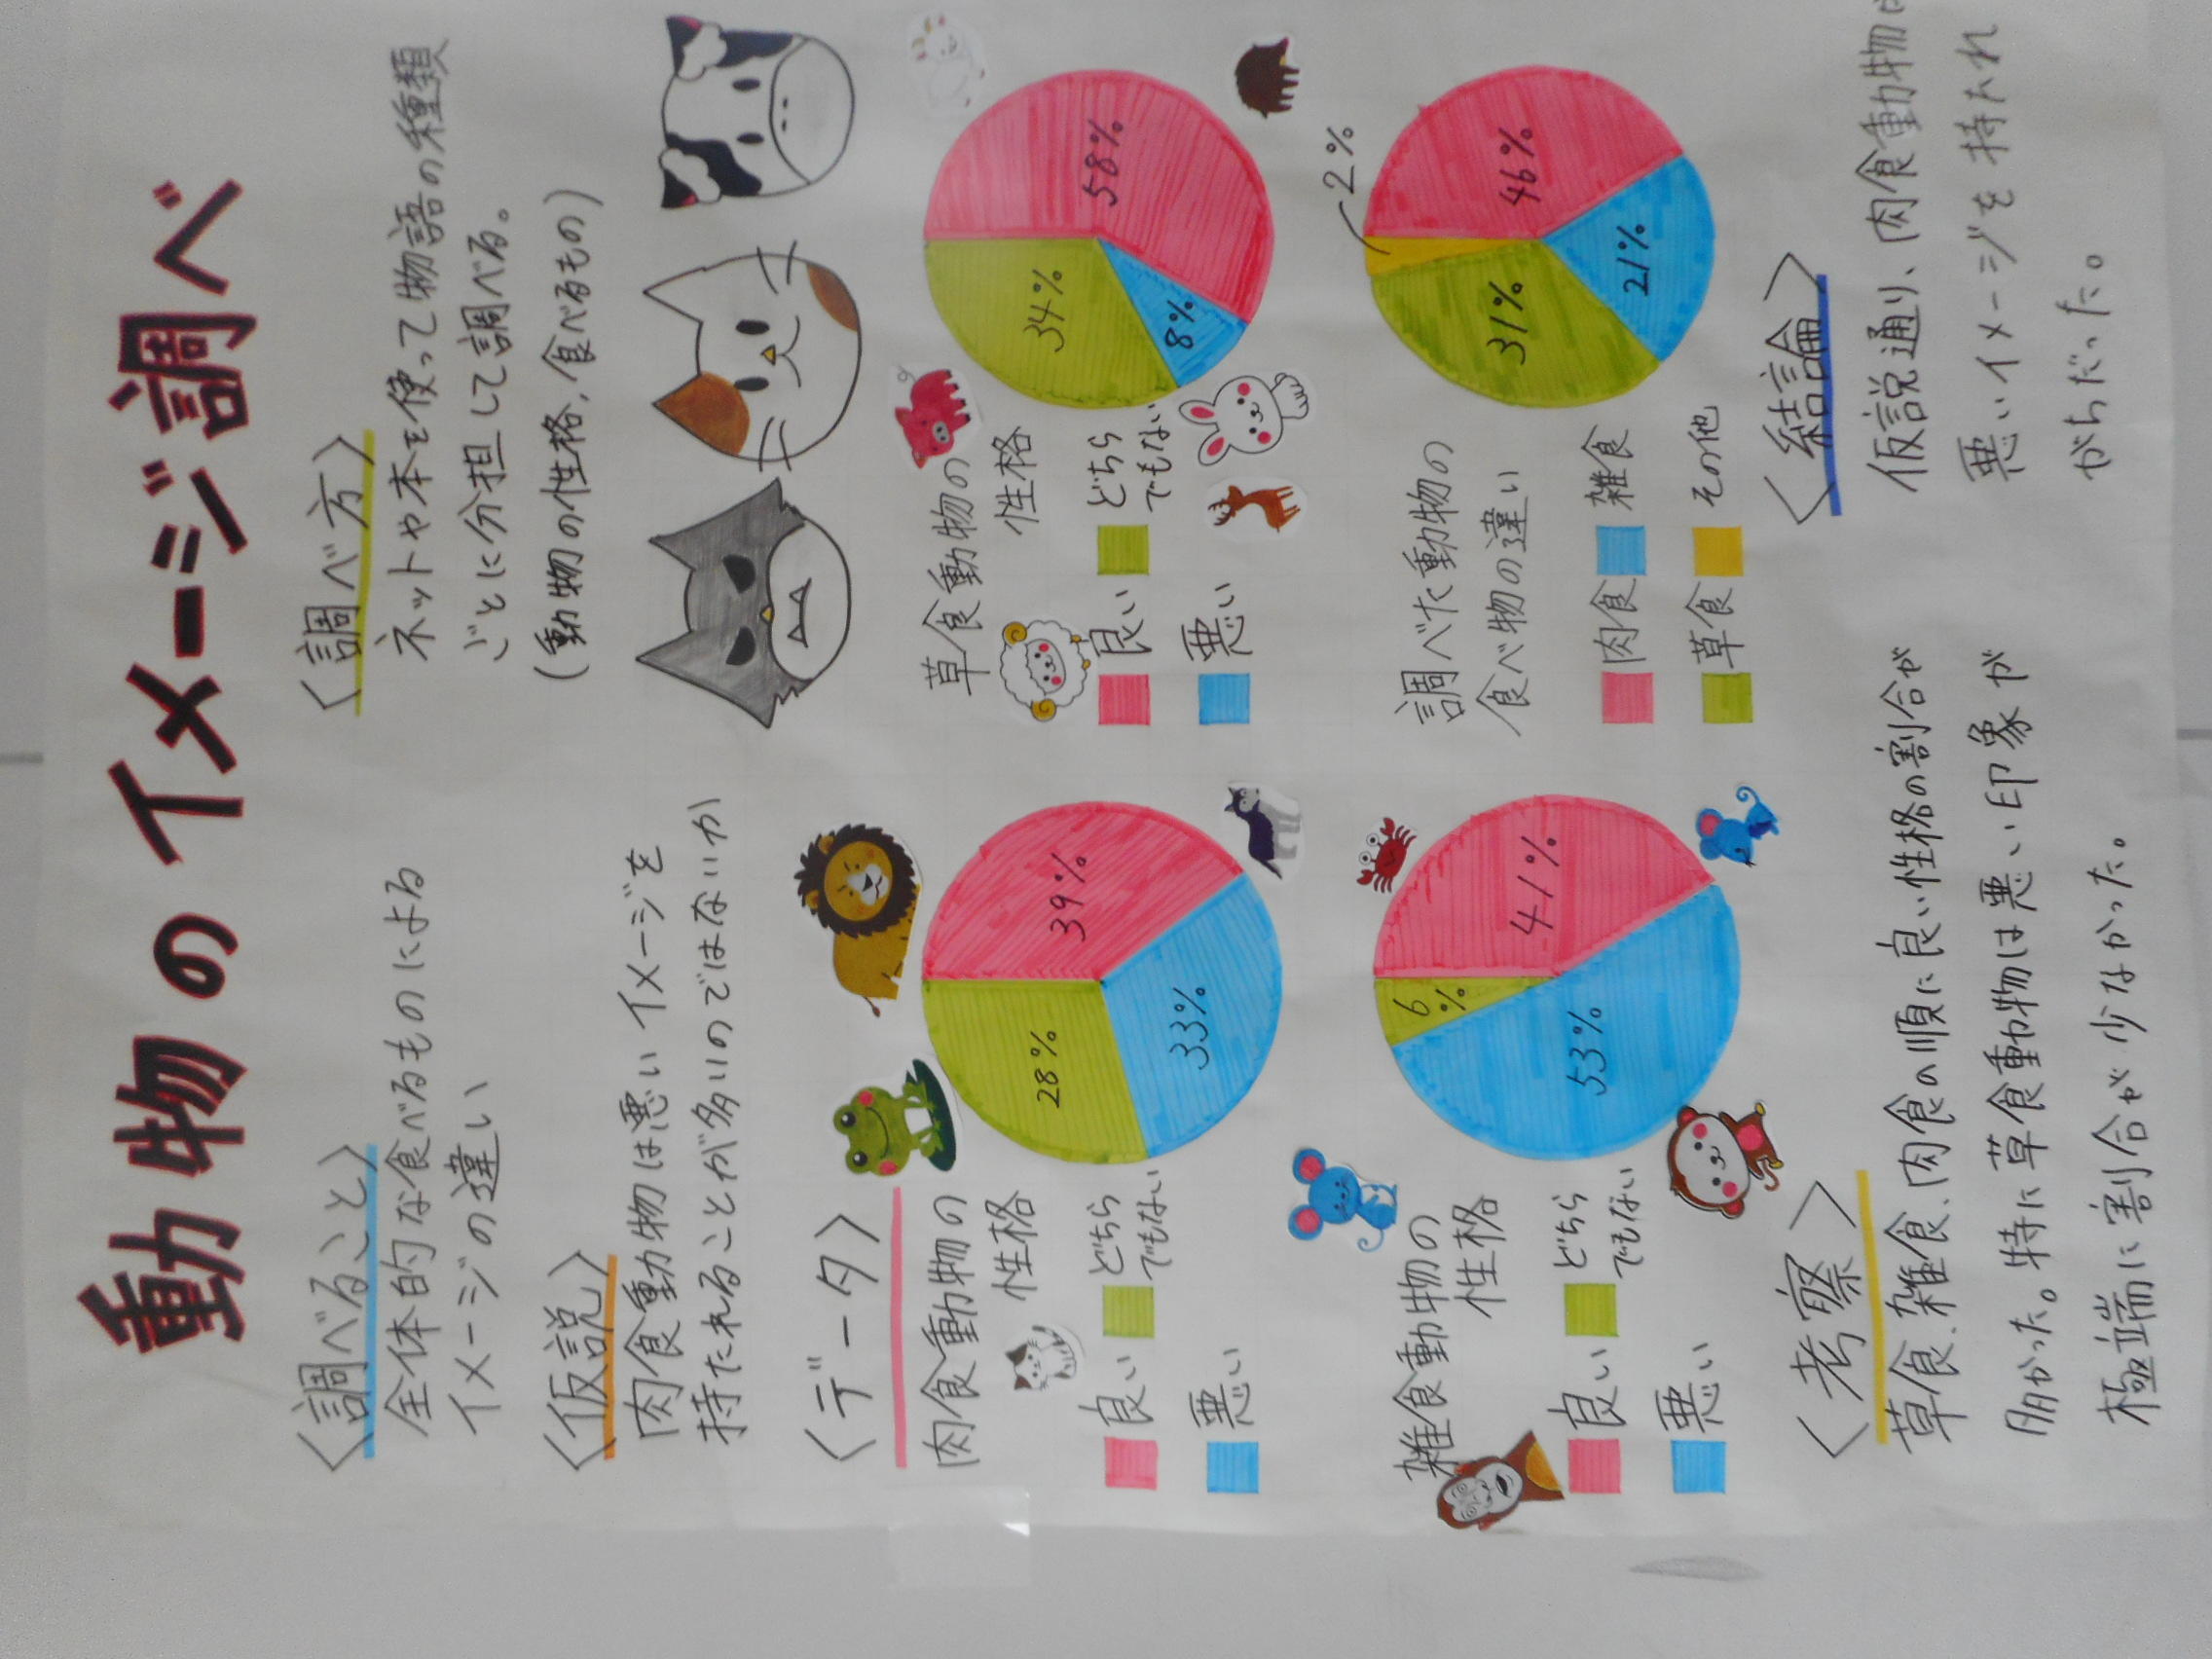 動物のイメージ調べ
〈調べること〉
全体的な食べるものによる
イメージの違い
〈調べ方〉
ネットや本を使って物語の種類
ごとに分担して調べる。
(動物の性格,食べるもの)
〈仮説〉
肉食動物は悪いイメージを
持たれることが多いのではないか
〈データ〉
肉食動物の
性格
良い
どちら
でもない
悪い
39%
33%
28%
草食動物の
性格
良い
どちら
でもない
悪い
58%
8%
34%
雑食動物の
性格
良い
どちら
でもない
悪い
41%
53%
6
%
調べた動物の
食べ物の違い
肉食
雑食
草食
その他
2%
46%
21%
31%
〈考察〉
草食、雑食、肉食の順に良い性格の割合が
多かった。特に草食動物は悪い印象が
極端に割合が少なかった。
〈結論〉
仮説通り、肉食動物は
悪いイメージを持たれ
がちだった。